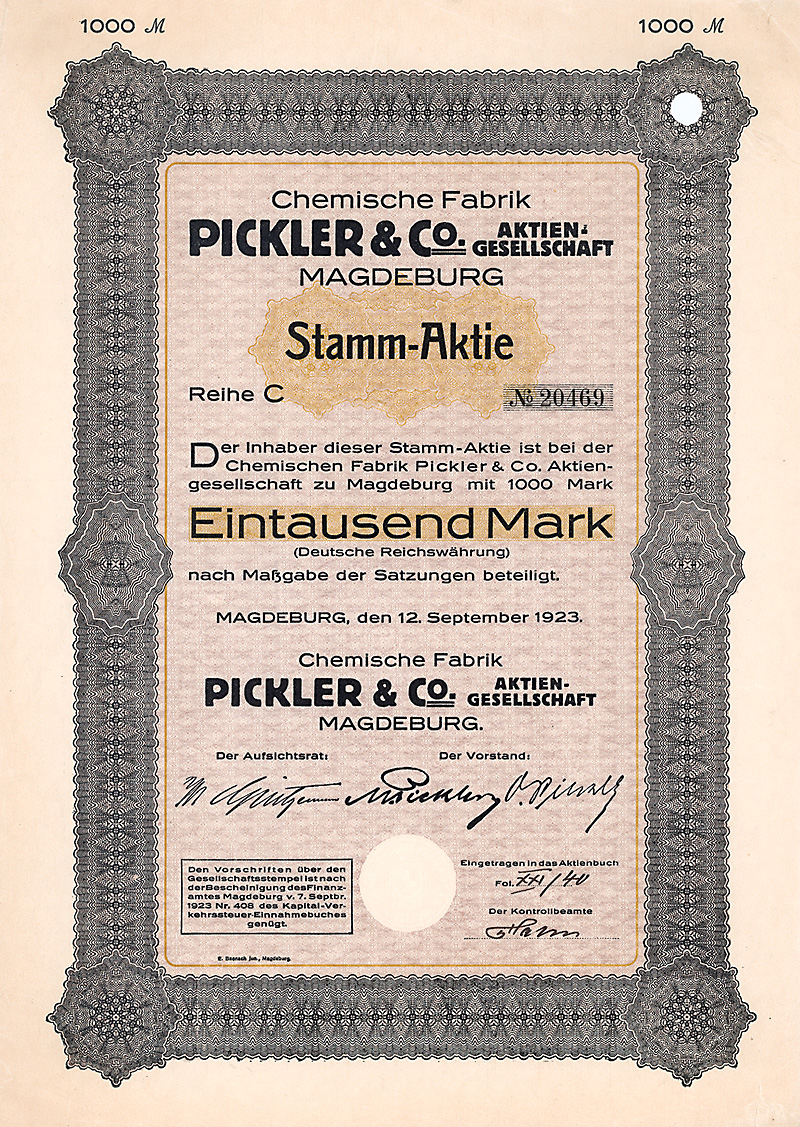 1000 M
1000 M
Chemische Fabrik
PICKLER & Co. AKTIEN-
GESELLSCHAFT
MAGDEBURG
Stamm-Aktie
Reihe C
No 20469
Der Inhaber dieser Stamm-Aktie ist bei der
Chemischen Fabrik Pickler & Co. Aktien-
gesellschaft zu Magdeburg mit 1000 Mark
Eintausend Mark
(Deutsche Reichswährung)
nach Maßgabe der Satzungen beteiligt.
MAGDEBURG, den 12. September 1923.
Chemische Fabrik
PICKLER & Co. AKTIEN-
GESELLSCHAFT
MAGDEBURG.
Der Aufsichtsrat:
Der Vorstand:
Den Vorschriften über den
Gesellschaftsstempel ist nach
der Bescheinigung des Finanz-
amtes Magdeburg v. 7. Septbr.
1923 Nr. 408 des Kapital-Ver-
kehrssteuer-Einnahmebuches
genügt.
Eingetragen in das Aktienbuch
Fol. XXI/40
Der Kontrollbeamte
E. Baensch jun., Magdeburg.